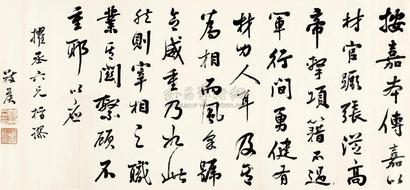 按嘉本傳嘉以
材官蹶張從高
帝擊項籍不過
軍行間勇健有
材力人耳及為
為相而風采號
令威重乃如此
然則宰相之職
業其關繫顧不
重耶以應
擢丞六兄指謬